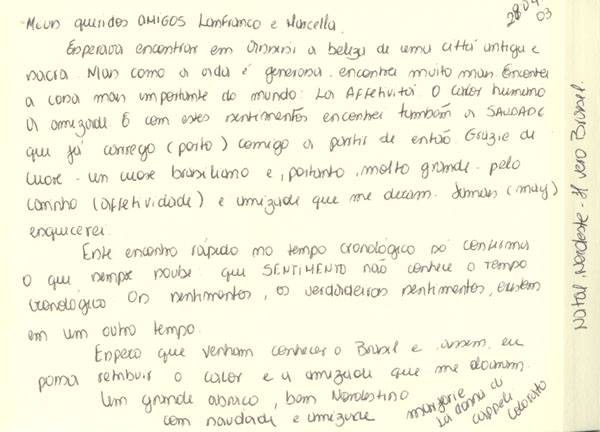 Meus queridos AMIGOS Lanfranco e Marcella.
28.04.03
Esperava encontrar em Assisi a beleza de uma città antiga e
sacra. Mas como a vida é generosa encontrei muito mais. Encontrei
a coisa mais importante do mundo: La AFFETIVITÁ. O calor humano
A amizade E com estes sentimentos encontrei também a SAUDADE
que já carrego (porto) comigo a partir de então. Grazie de
cuore - un cuore brasiliano e, portanto, molto grande - pelo
carinho (affetividade) e amizade que me deram. Jamais (may)
esquecerei.
Este encontro rápido no tempo cronológico só confirma
o que sempre soube: que SENTIMENTO não conhece o tempo
cronológico. Os sentimentos, os verdadeiros sentimentos, existem
em um outro tempo.
Espero que venham conhecer o Brasil e assim eu
possa retribuir o calor e a amizade que me doaram.
Um grande abraço, bem Nordestino
com saudade e amizade
Marjorie
La donna di
cappelli
colorato
Natal, Nordeste - Il vero Brasil.